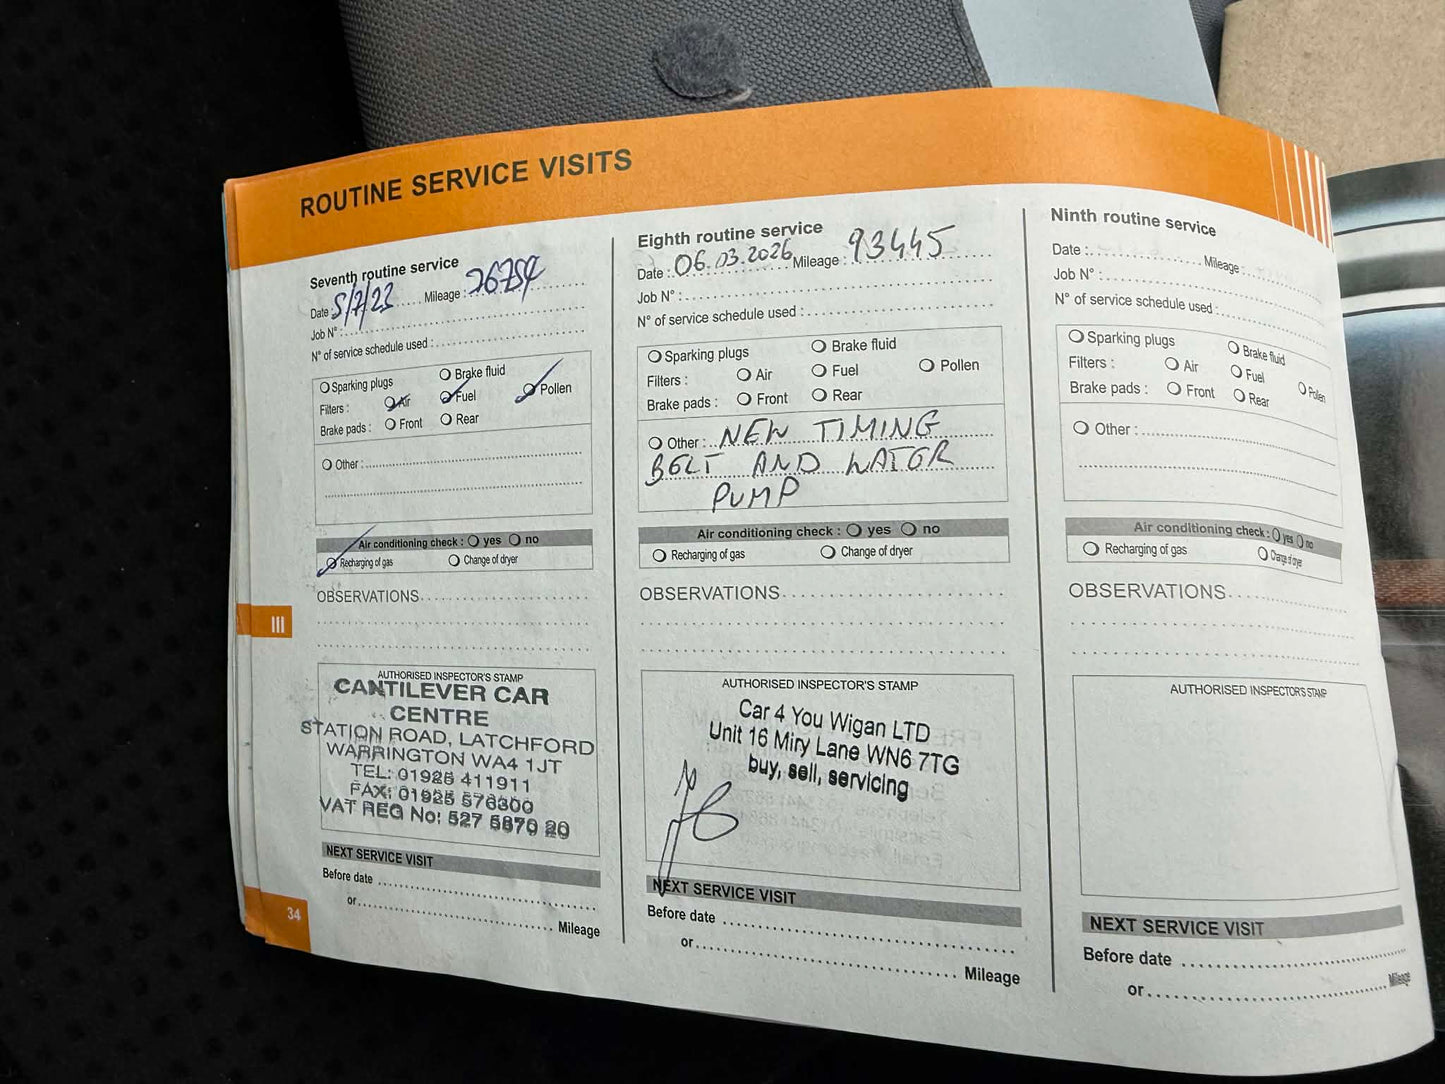 ROUTINE SERVICE VISITS
Seventh routine service
Date : 5/7/23 Mileage :
Job N° :
N° of service schedule used :
Sparking plugs Brake fluid
Filters : Air Fuel Pollen
Brake pads : Front Rear
Other :
Air conditioning check : yes no
Recharging of gas Change of dryer
OBSERVATIONS
AUTHORISED INSPECTOR'S STAMP
CANTILEVER CAR
CENTRE
STATION ROAD, LATCHFORD
WARRINGTON WA4 1JT
TEL: 01925 411911
FAX: 01925 576300
VAT REG No: 527 5870 20
NEXT SERVICE VISIT
Before date
or Mileage
Eighth routine service
Date : 06.03.2026 Mileage : 93445
Job N° :
N° of service schedule used :
Sparking plugs Brake fluid
Filters : Air Fuel Pollen
Brake pads : Front Rear
Other : NEW TIMING
BELT AND WATER
PUMP
Air conditioning check : yes no
Recharging of gas Change of dryer
OBSERVATIONS
AUTHORISED INSPECTOR'S STAMP
Car 4 You Wigan LTD
Unit 16 Miry Lane WN6 7TG
buy, sell, servicing
NEXT SERVICE VISIT
Before date
or Mileage
Ninth routine service
Date : Mileage :
Job N° :
N° of service schedule used :
Sparking plugs Brake fluid
Filters : Air Fuel Pollen
Brake pads : Front Rear
Other :
Air conditioning check : yes no
Recharging of gas Change of dryer
OBSERVATIONS
AUTHORISED INSPECTOR'S STAMP
NEXT SERVICE VISIT
Before date
or Mileage
III
34